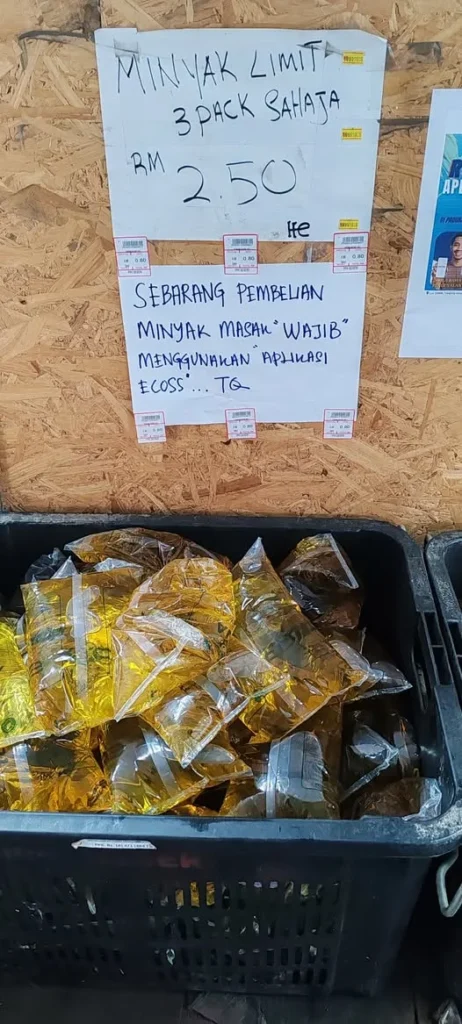 MINYAK LIMIT
3 PACK SAHAJA
RM 2.50
SEBARANG PEMBELIAN
MINYAK MASAK "WAJIB"
MENGGUNAKAN "APLIKASI
ECOSS"... TQ